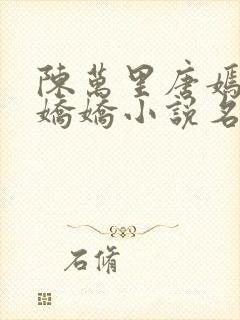 陳萬里唐嫣
嬌嬌小説名
石脩